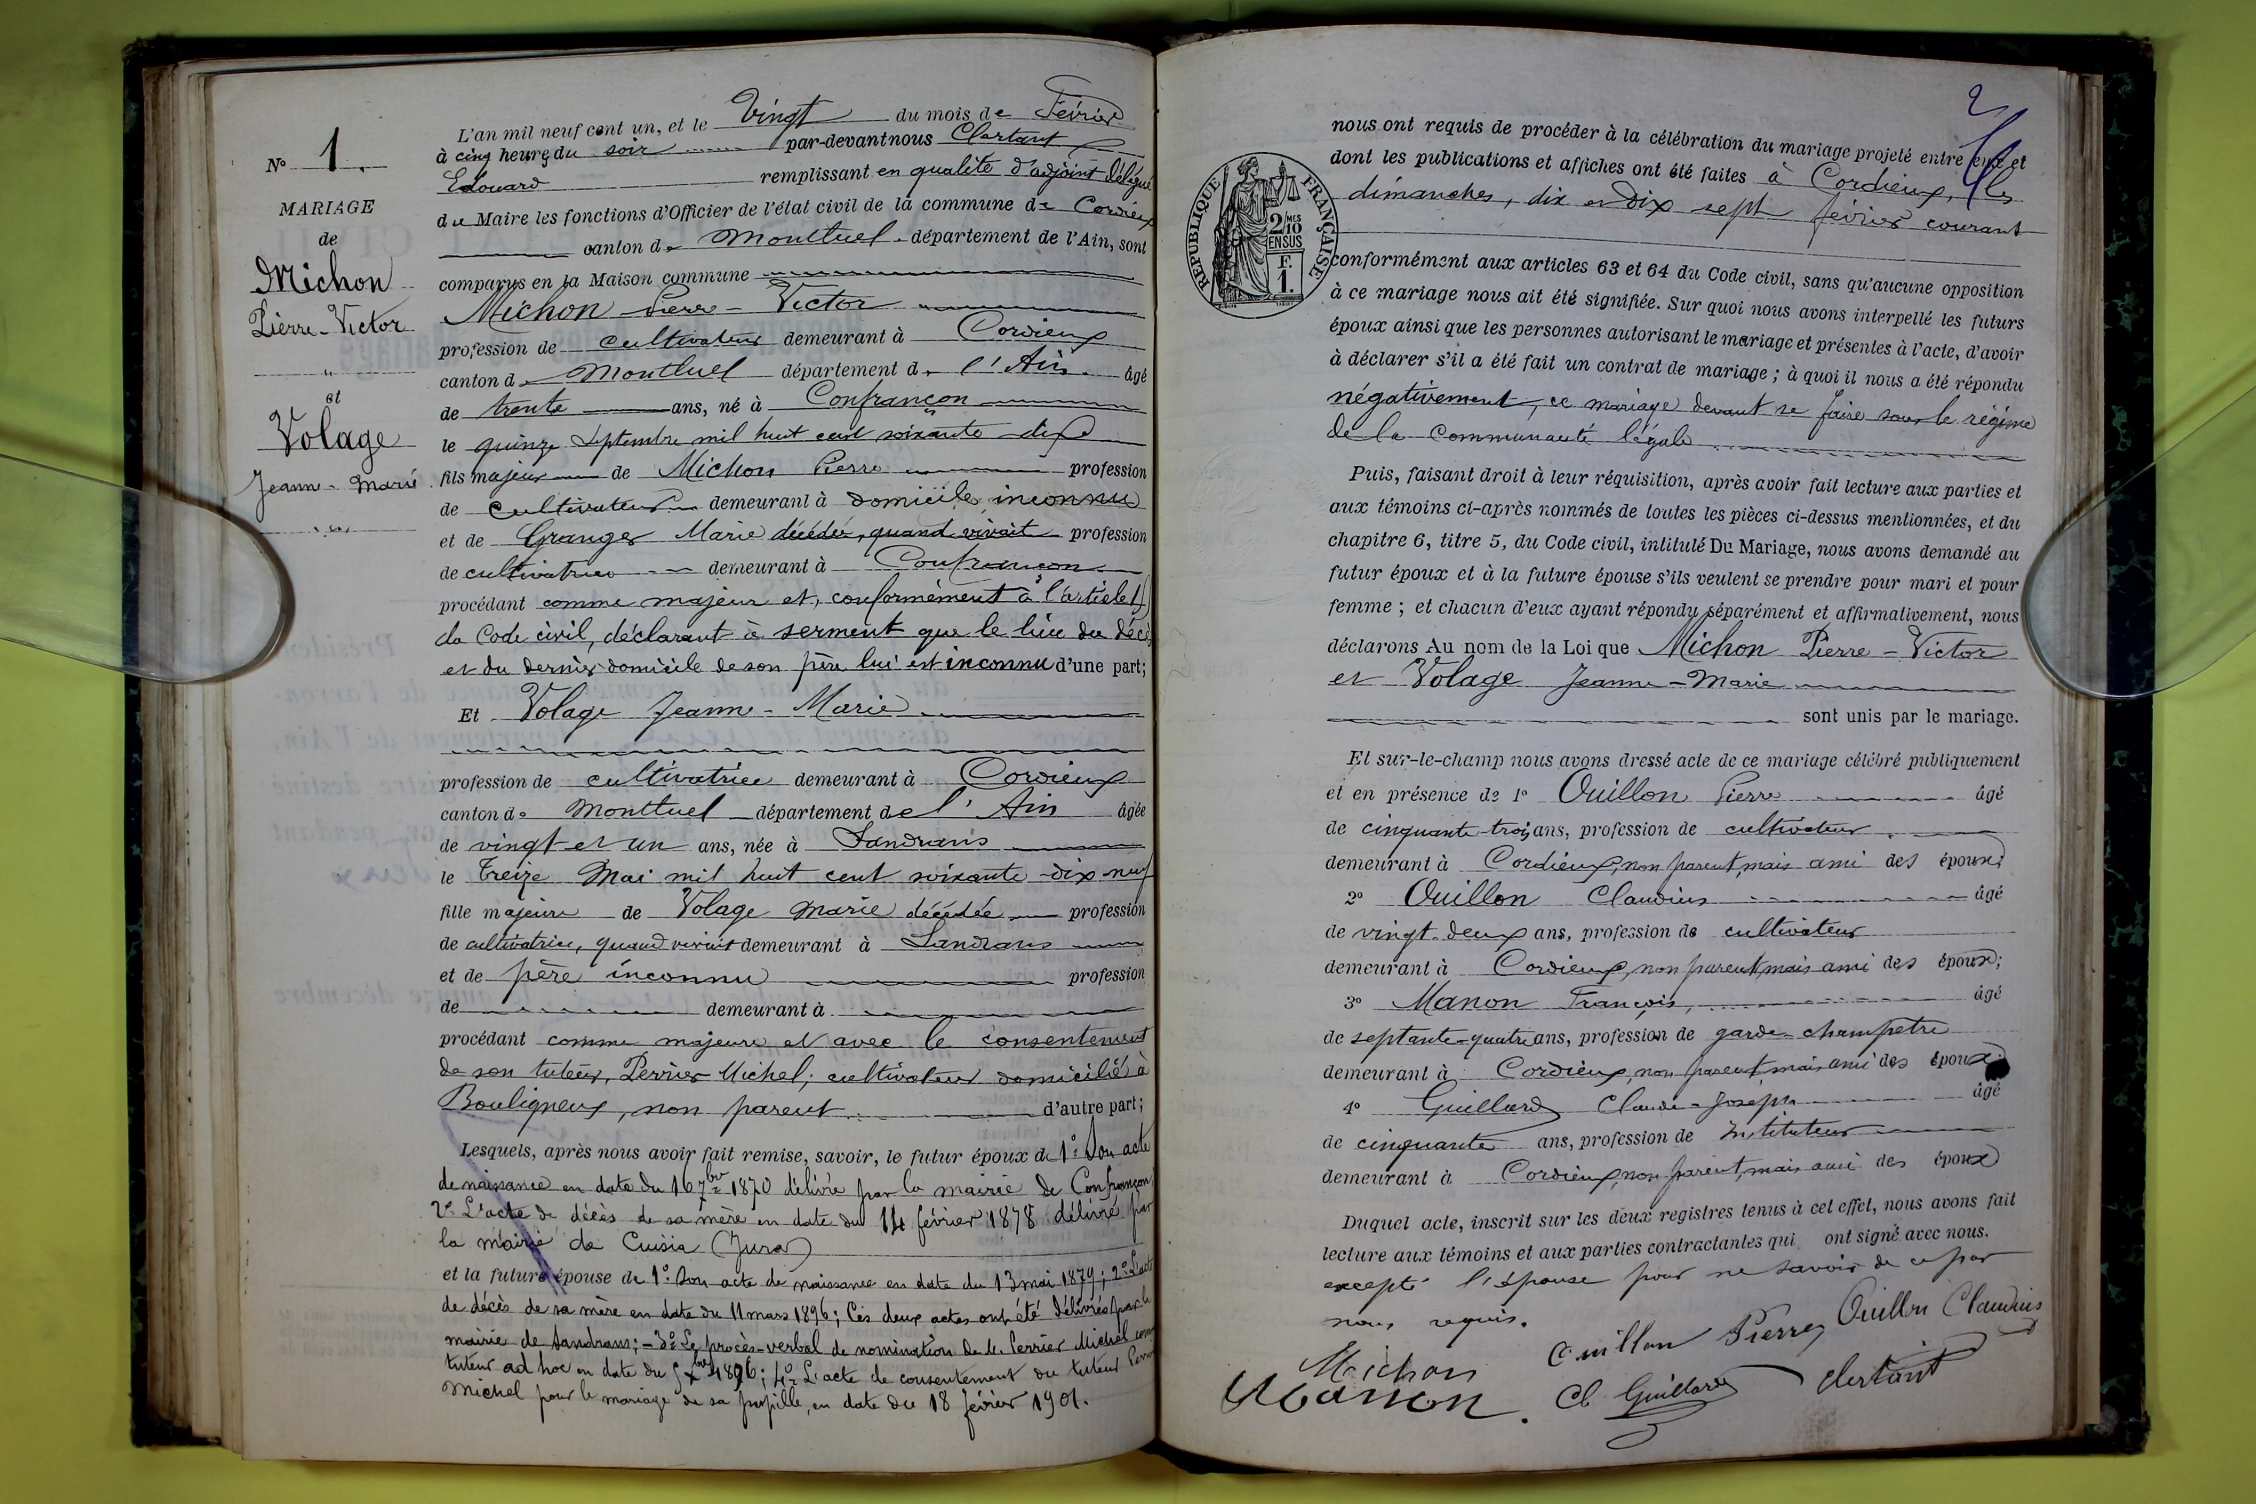 N° 1.
MARIAGE
de
Michon
Pierre-Victor
et
Volage
Jeanne-Marie
L'an mil neuf cent un, et le Vingt du mois de Février
à cinq heures du soir par-devant nous Clertant
Edouard remplissant en qualité d'adjoint délégué
du Maire les fonctions d'Officier de l'état civil de la commune de Cordieux
canton de Montluel département de l'Ain, sont
comparus en la Maison commune
Michon Pierre-Victor
profession de cultivateur demeurant à Cordieux
canton de Montluel département de l'Ain âgé
de trente ans, né à Confrançon
le quinze Septembre mil huit cent soixante-dix
fils majeur de Michon Pierre profession
de Cultivateur demeurant à domicile inconnu
et de Granger Marie décédée, quand vivait profession
de cultivatrice demeurant à Confrançon
procédant comme majeur et, conformément à l'article
du Code civil, déclarant à serment que le lieu du décès
et du dernier domicile de son père lui est inconnu d'une part;
Et Volage Jeanne-Marie
profession de cultivatrice demeurant à Cordieux
canton de Montluel département de l'Ain âgée
de vingt et un ans, née à Sandrans
le Treize Mai mil huit cent soixante-dix-neuf
fille majeure de Volage Marie décédée profession
de cultivatrice, quand vivait demeurant à Sandrans
et de père inconnu profession
de demeurant à
procédant comme majeure et avec le consentement
de son tuteur, Perrier Michel, cultivateur domicilié à
Bouligneux, non parent d'autre part;
Lesquels, après nous avoir fait remise, savoir, le futur époux de 1° Son acte
de naissance en date du 16 7bre 1870 délivré par la mairie de Confrançon
2° L'acte de décès de sa mère en date du 14 février 1878 délivré par
la mairie de Cuisia (Jura)
et la future épouse de 1° Son acte de naissance en date du 13 mai 1879; 2° L'acte
de décès de sa mère en date du 11 mars 1896; Ces deux actes ont été délivrés par la
mairie de Sandrans; - 3° Le procès-verbal de nomination de M. Perrier Michel comme
tuteur ad hoc en date du 5 Xbre 1896; 4° L'acte de consentement du tuteur Perrier
Michel pour le mariage de sa pupille, en date du 18 février 1901.
2
RÉPUBLIQUE FRANÇAISE
2/10MES
EN SUS
F.
1.
nous ont requis de procéder à la célébration du mariage projeté entre eux et
dont les publications et affiches ont été faites à Cordieux, les
dimanches, dix et dix sept février courant
conformément aux articles 63 et 64 du Code civil, sans qu'aucune opposition
à ce mariage nous ait été signifiée. Sur quoi nous avons interpellé les futurs
époux ainsi que les personnes autorisant le mariage et présentes à l'acte, d'avoir
à déclarer s'il a été fait un contrat de mariage; à quoi il nous a été répondu
négativement, ce mariage devant se faire sous le régime
de la Communauté légale
Puis, faisant droit à leur réquisition, après avoir fait lecture aux parties et
aux témoins ci-après nommés de toutes les pièces ci-dessus mentionnées, et du
chapitre 6, titre 5, du Code civil, intitulé Du Mariage, nous avons demandé au
futur époux et à la future épouse s'ils veulent se prendre pour mari et pour
femme; et chacun d'eux ayant répondu séparément et affirmativement, nous
déclarons Au nom de la Loi que Michon Pierre-Victor
et Volage Jeanne-Marie
sont unis par le mariage.
Et sur-le-champ nous avons dressé acte de ce mariage célébré publiquement
et en présence de 1° Ouillon Pierre âgé
de cinquante-trois ans, profession de cultivateur
demeurant à Cordieux, non parent, mais ami des époux;
2° Ouillon Claudius âgé
de vingt-deux ans, profession de cultivateur
demeurant à Cordieux, non parent, mais ami des époux;
3° Manon François, âgé
de septante-quatre ans, profession de garde-champetre
demeurant à Cordieux, non parent, mais ami des époux
4° Guillard Claude-Joseph âgé
de cinquante ans, profession de Instituteur
demeurant à Cordieux, non parent, mais ami des époux
Duquel acte, inscrit sur les deux registres tenus à cet effet, nous avons fait
lecture aux témoins et aux parties contractantes qui ont signé avec nous.
excepté l'épouse pour ne savoir de ce par
nous requis.
Michon Ouillon Pierre Ouillon Claudius
Manon. Cl Guillard Clertant